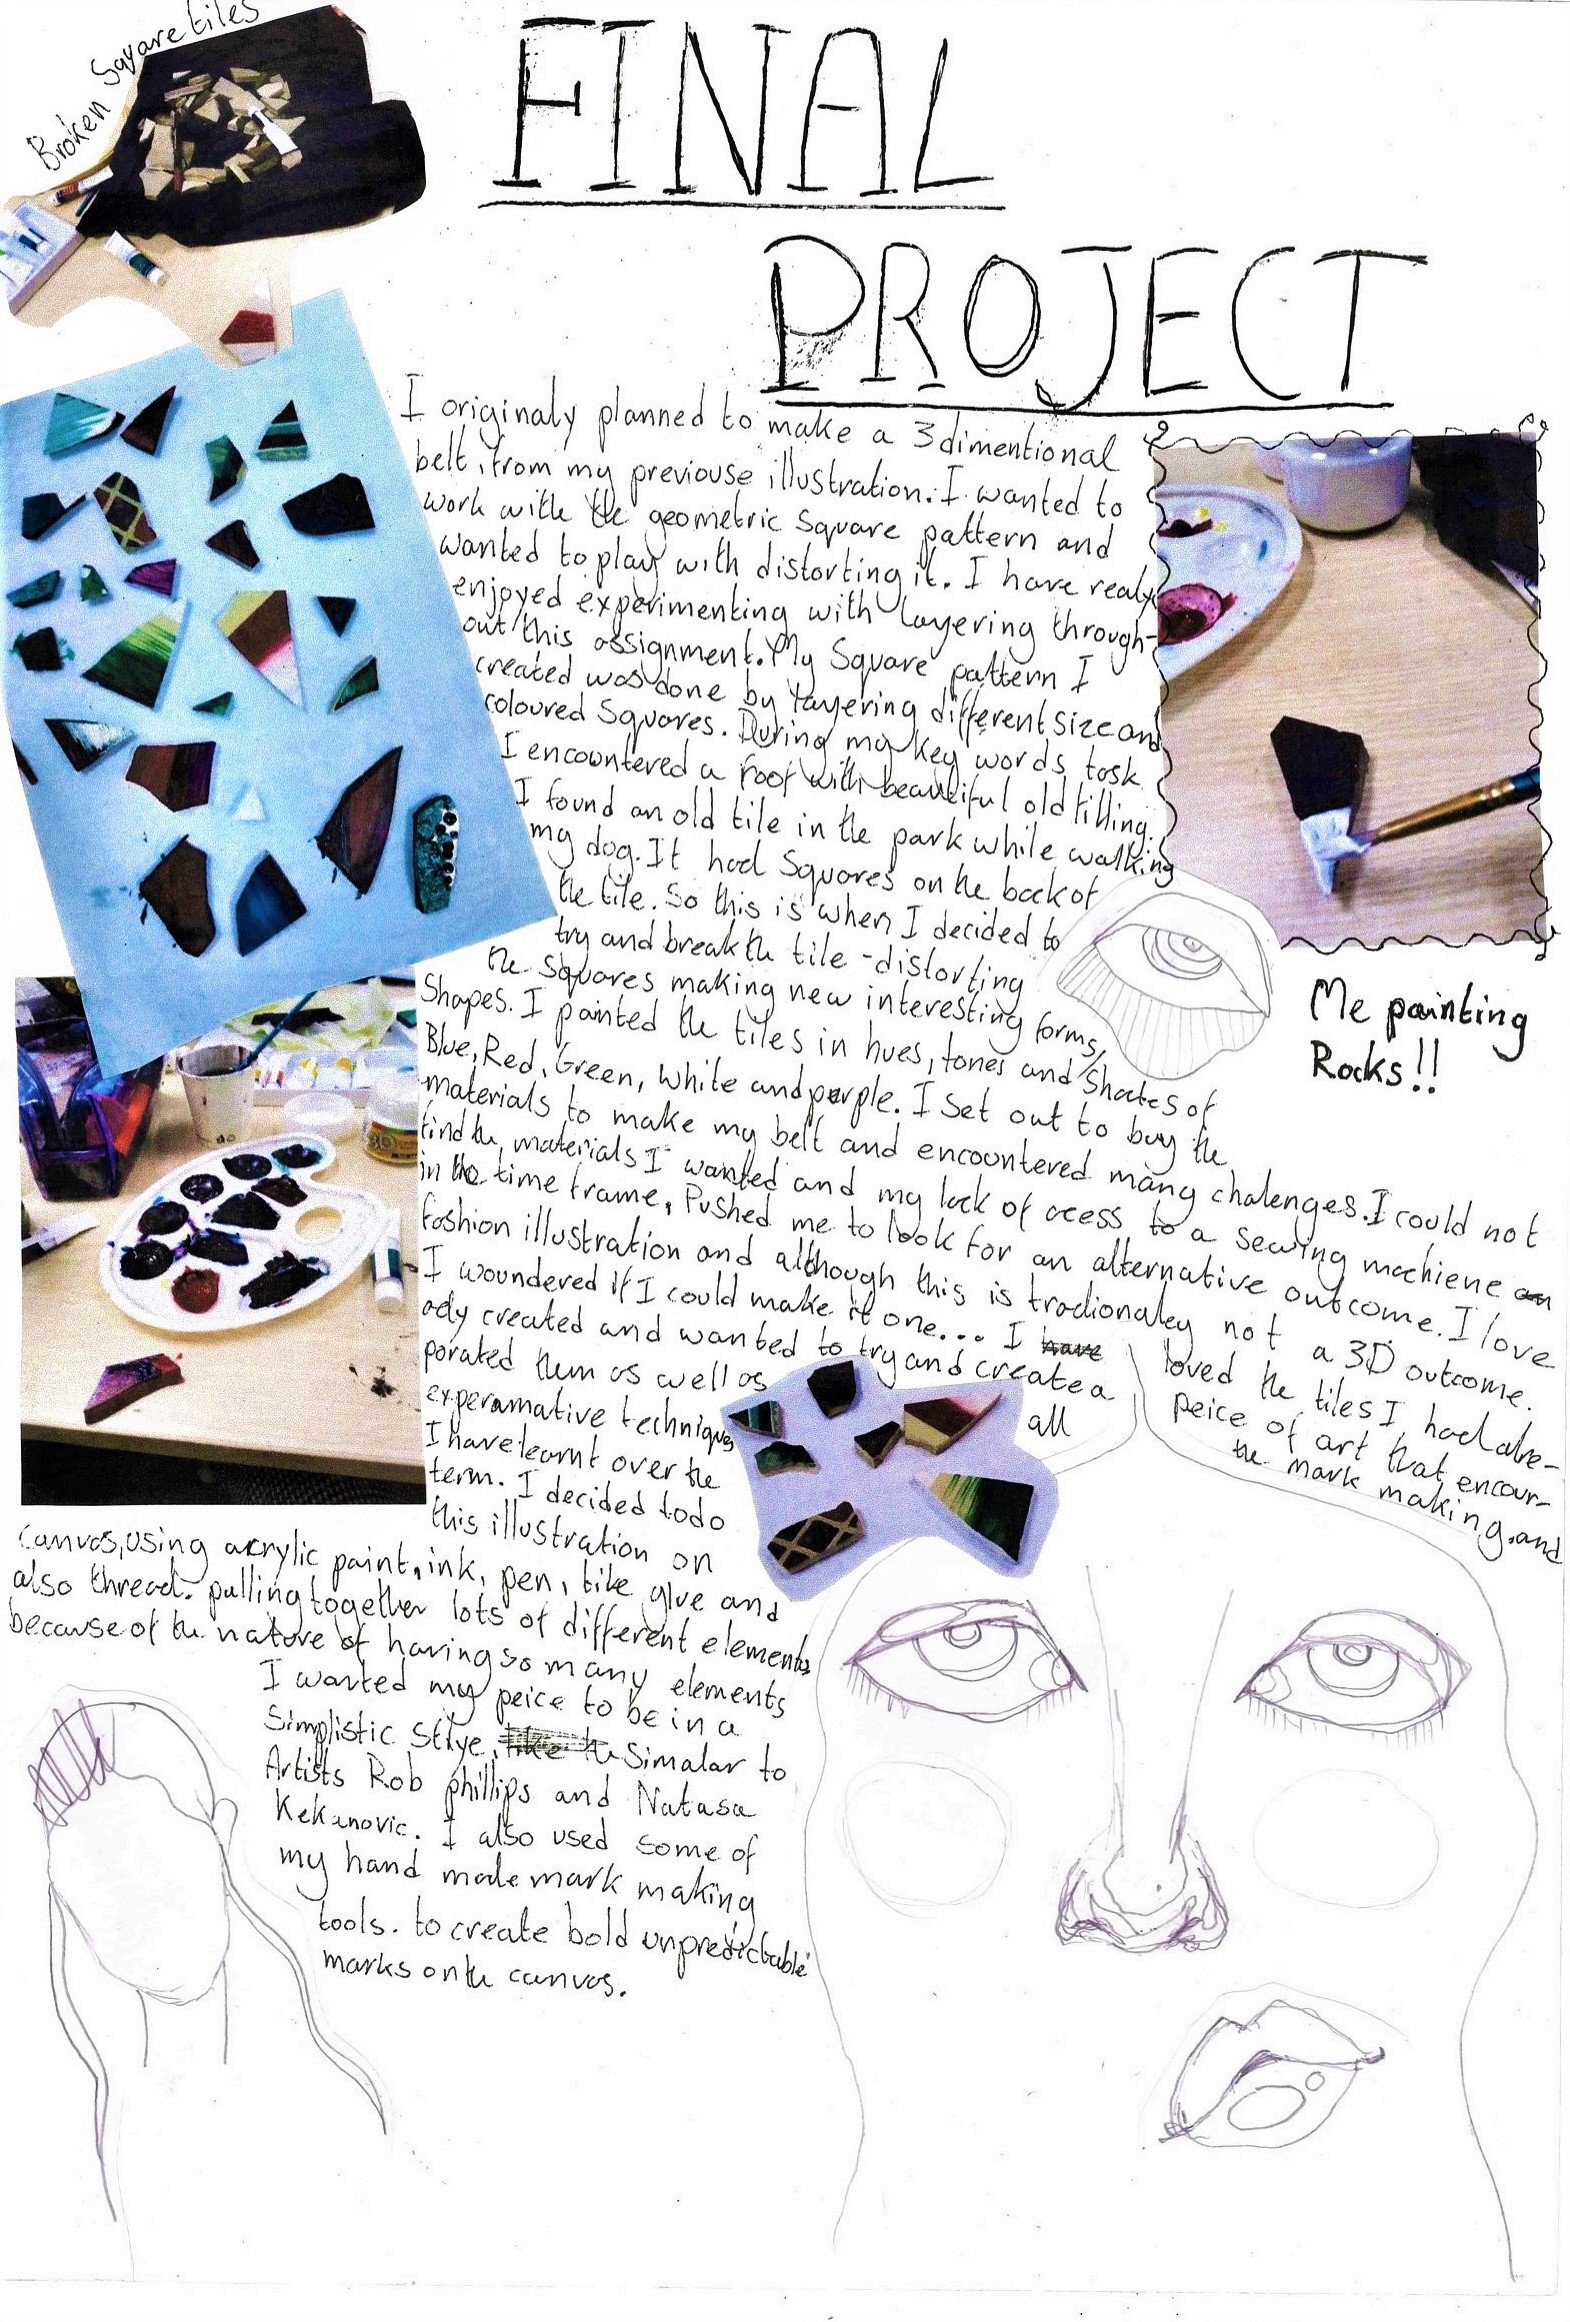 Broken Square tiles
FINAL
PROJECT
I originaly planned to make a 3dimentional
belt, from my previouse illustration. I wanted to
work with the geometric Square pattern and
wanted to play with distorting it. I have realy
enjoyed experimenting with layering through-
out this assignment. My Square pattern I
created was done by layering different size and
coloured Squares. During my key words task
I encountered a roof with beautiful old tilling.
I found an old tile in the park while walking
my dog. It had Squares on the back of
the tile. So this is when I decided to
try and break the tile - distorting
the squares making new interesting forms,
Shapes. I painted the tiles in hues, tones and Shades of
Blue, Red, Green, White and purple. I Set out to buy the
materials to make my belt and encountered many chalenges. I could not
find the materials I wanted and my lack of acess to a sewing machiene an
in the time frame, Pushed me to look for an alternative outcome. I love
fashion illustration and although this is tradionaley not a 3D outcome.
I woundered if I could make it one... I have loved the tiles I had alre-
ady created and wanted to try and create a peice of art that encour-
porated them as well as all the mark making, and
experamative techniques
I have learnt over the
term. I decided to do
this illustration on
canvas, using acrylic paint, ink, pen, tile glue and
also thread. pulling together lots of different elements
because of the nature of having so many elements
I wanted my peice to be in a
Simplistic Stlye, like the Simalar to
Artists Rob phillips and Natasa
Kekanovic. I also used some of
my hand made mark making
tools. to create bold unpredictable
marks on the canvas.
Me painting
Rocks!!